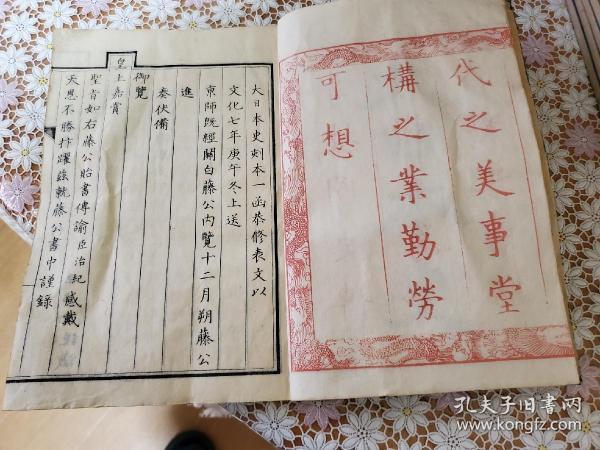 代之美事堂
構之業勤勞
可想
大日本史刻本一函恭修表文以
文化七年庚午冬上送
京師既經關白藤公內覽十二月朔藤公
進
奏伏備
御覽
皇上嘉賞
聖旨如右藤公貽書傳諭臣治紀感戴
天恩不勝抃躍錄就藤公書中謹錄
孔夫子旧书网
www.kongfz.com